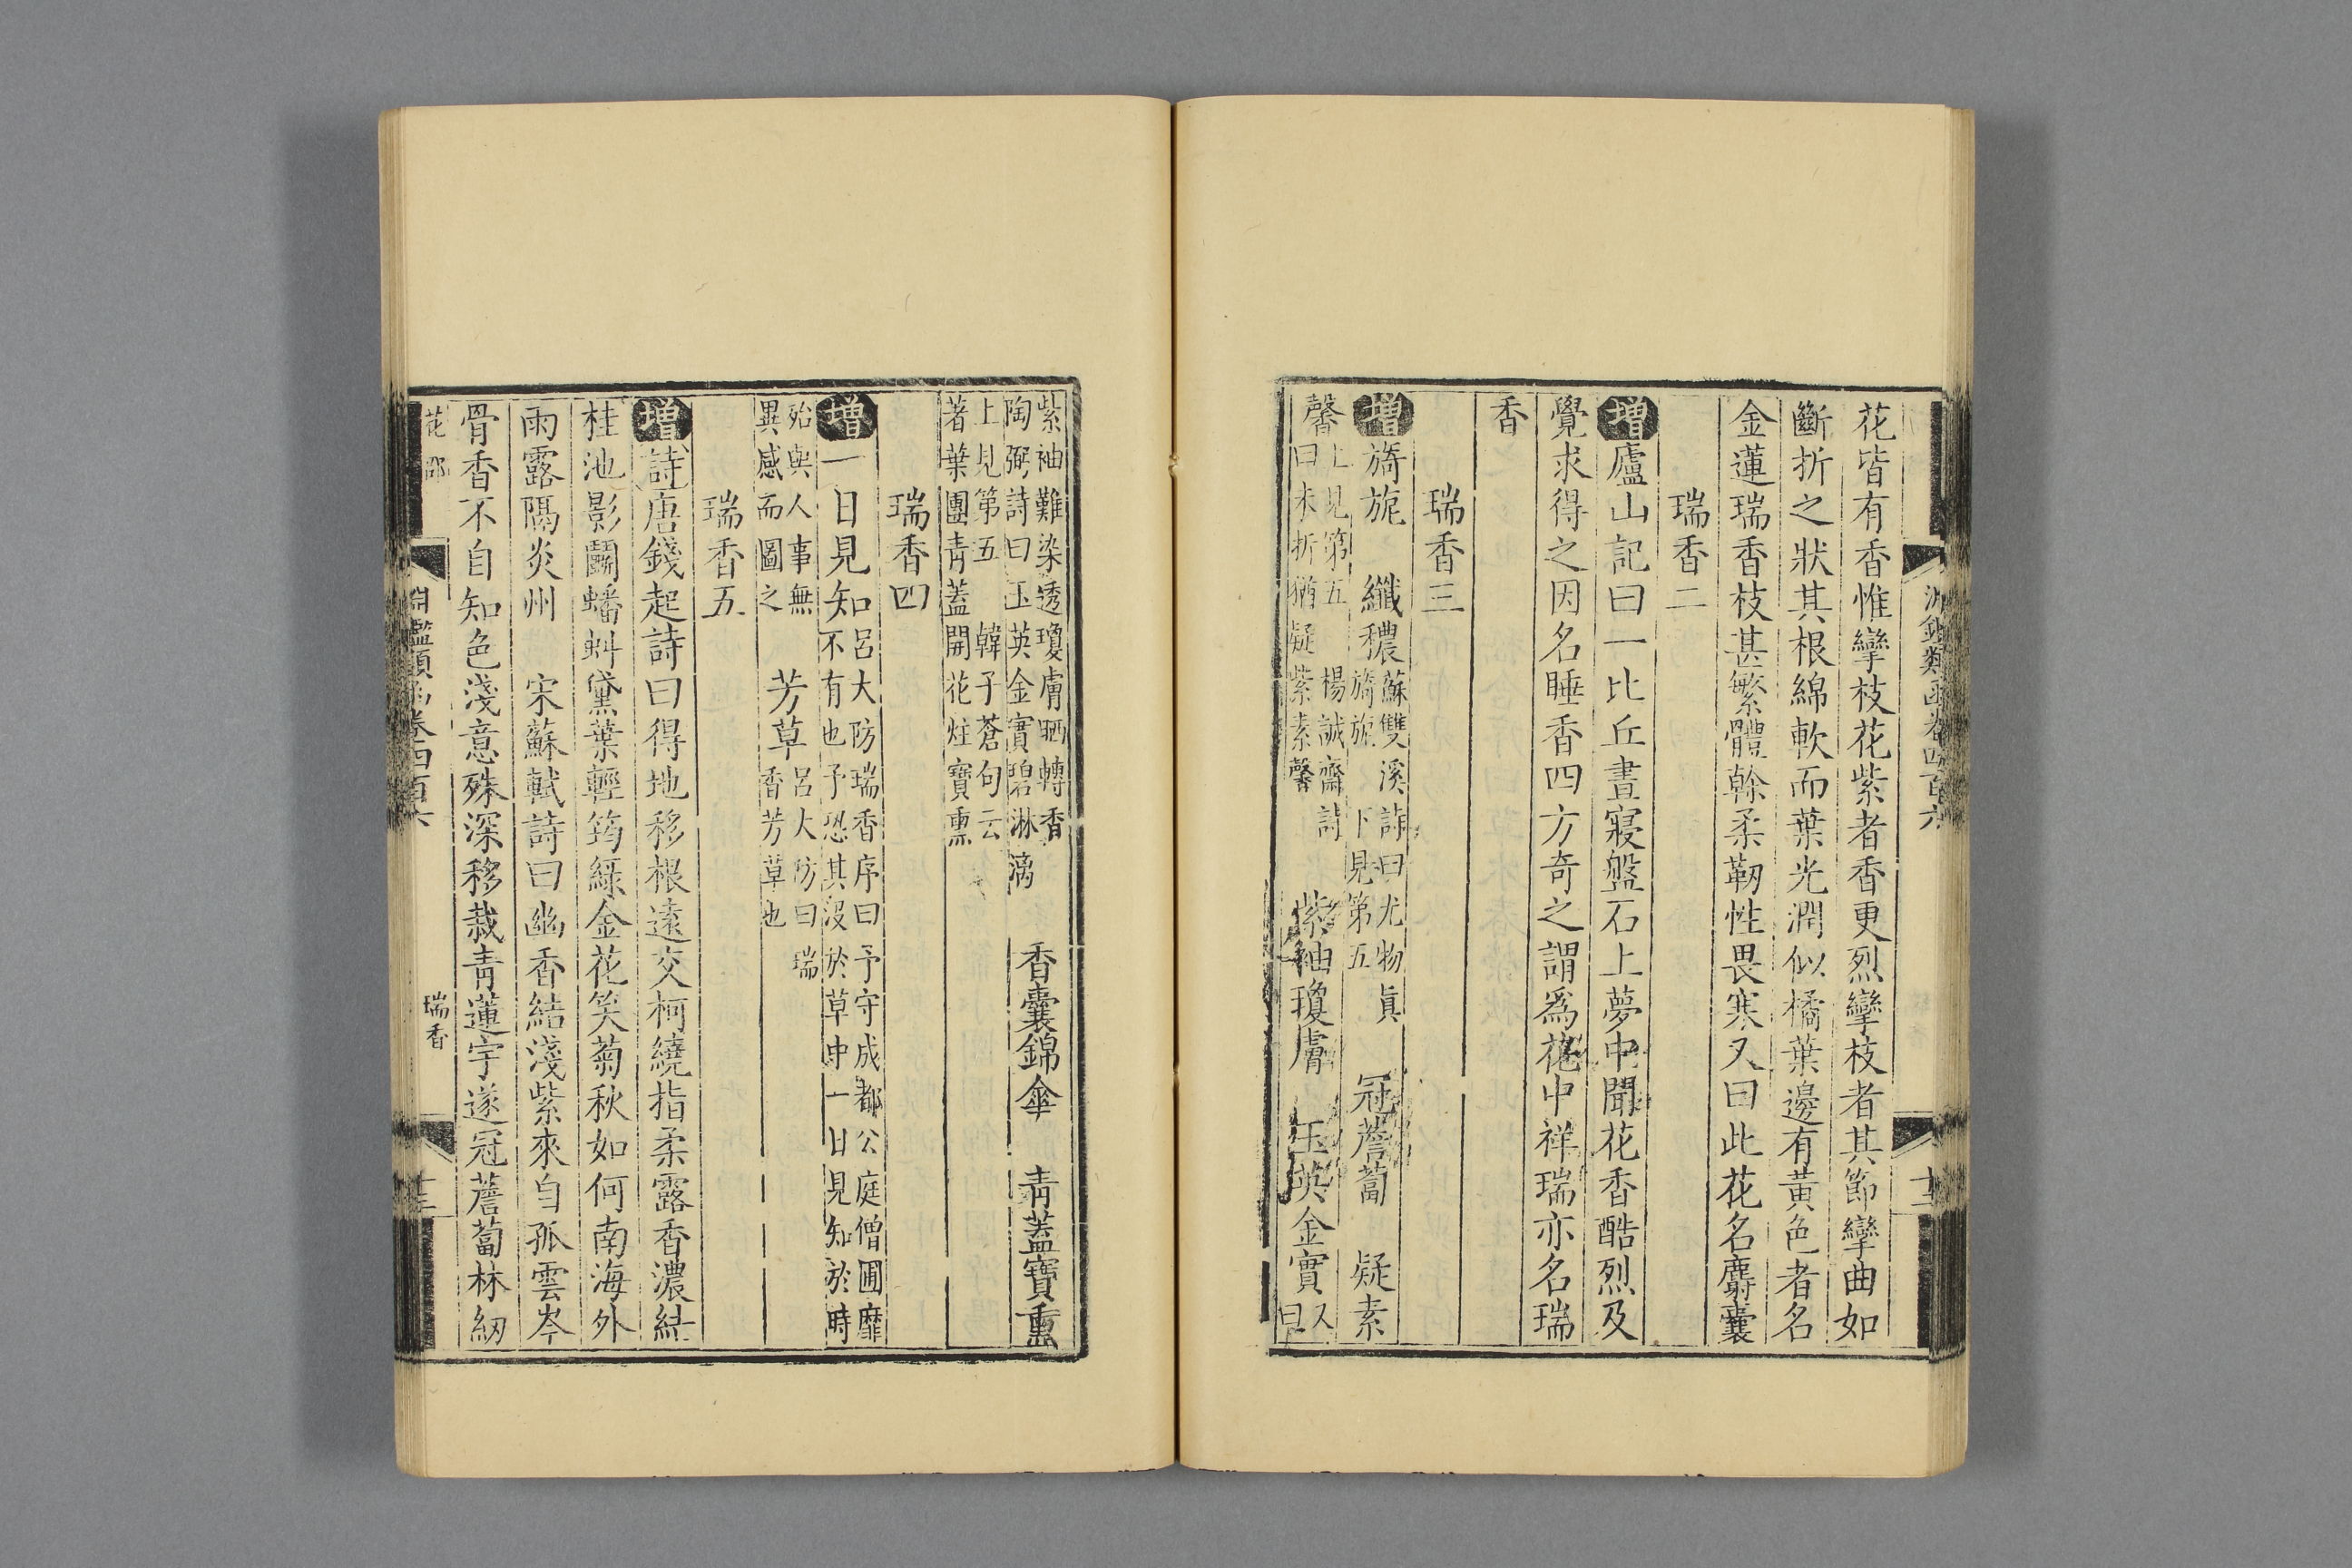 淵鑑類函卷四百六
十二
花皆有香惟攣枝花紫者香更烈攣枝者其節攣曲如
斷折之狀其根綿軟而葉光潤似橘葉邊有黃色者名
金蓮瑞香枝甚繁體幹柔韌性畏寒又曰此花名麝囊
瑞香二
增廬山記曰一比丘晝寢盤石上夢中聞花香酷烈及
覺求得之因名睡香四方奇之謂爲花中祥瑞亦名瑞
香
瑞香三
增旖旎 纖穠蘇雙溪詩曰尤物眞旖旎 下見第五 冠薝蔔 疑素
馨上見第五 楊誠齋詩曰未折猶疑紫素馨 紫袖瓊膚 玉英金實又曰
紫袖難染透瓊膚晒轉香陶弼詩曰玉英金實碧淋漓 香囊錦傘 靑蓋寶熏
上見第五 韓子蒼句云著葉團靑蓋開花炷寶熏
瑞香四
增一日見知呂大防瑞香序曰予守成都公庭僧圃靡不有也予恐其沒於草中一日見知於時
殆與人事無異感而圖之 芳草呂大防曰瑞香芳草也
瑞香五
增詩唐錢起詩曰得地移根遠交柯繞指柔露香濃結
桂池影鬭蟠虯黛葉輕筠綠金花笑菊秋如何南海外
雨露隔炎州 宋蘇軾詩曰幽香結淺紫來自孤雲岑
骨香不自知色淺意殊深移栽靑蓮宇遂冠薝蔔林紉
花部
淵鑑類函卷四百六
瑞香
十三